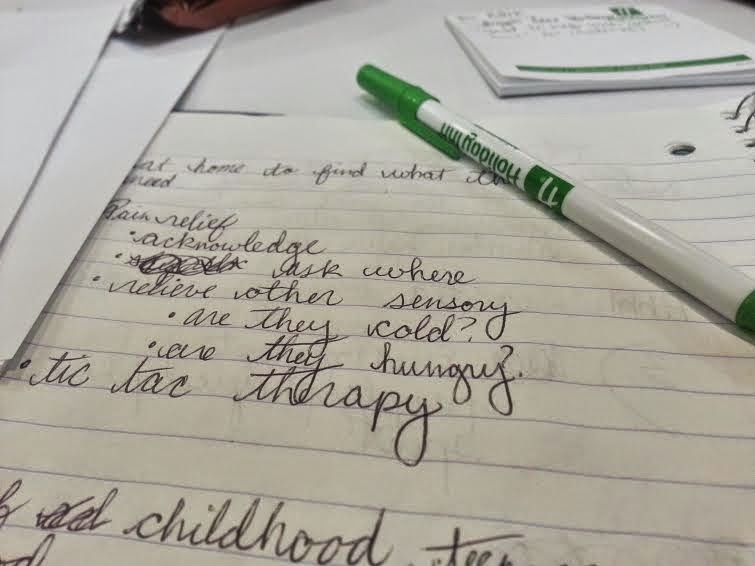 at home do find what the
need
Pain relief
• acknowledge
• ask where
• relieve other sensory
• are they cold?
• are they hungry?
• tic tac therapy
childhood teen
Holiday Inn